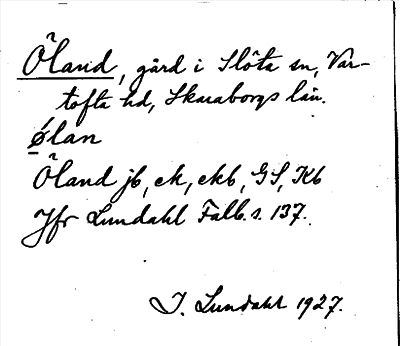 Öland, gård i Slöta sn, Var-
tofta hd, Skaraborgs län.
Ølan
Öland jb, ek, ekb, GS, Kb
Jfr Lundahl Falb. s. 137.
I. Lundahl 1927.